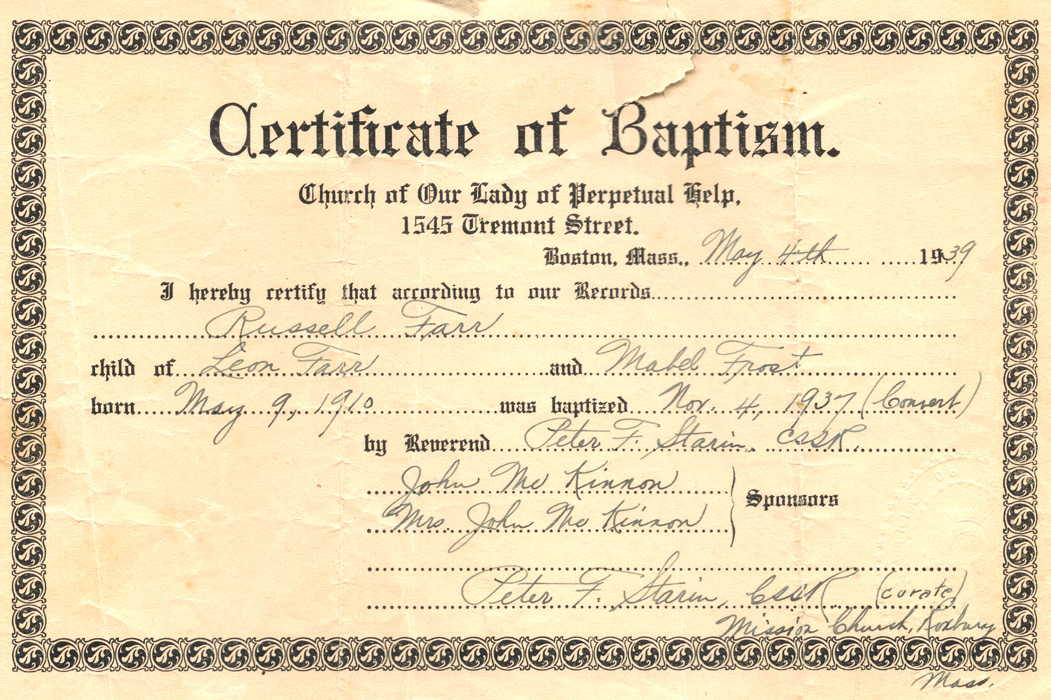 Certificate of Baptism.
Church of Our Lady of Perpetual Help,
1545 Tremont Street.
Boston, Mass., May 4th 1939
I hereby certify that according to our Records
Russell Farr
child of Leon Farr and Mabel Frost
born May 9, 1910 was baptized Nov. 4, 1937 (Convert)
by Reverend Peter F. Starin, CSSR.
John Mc Kinnon
Mrs. John Mc Kinnon
Sponsors
Peter F. Starin, CSSR. (curate)
Mission Church, Roxbury
Mass.